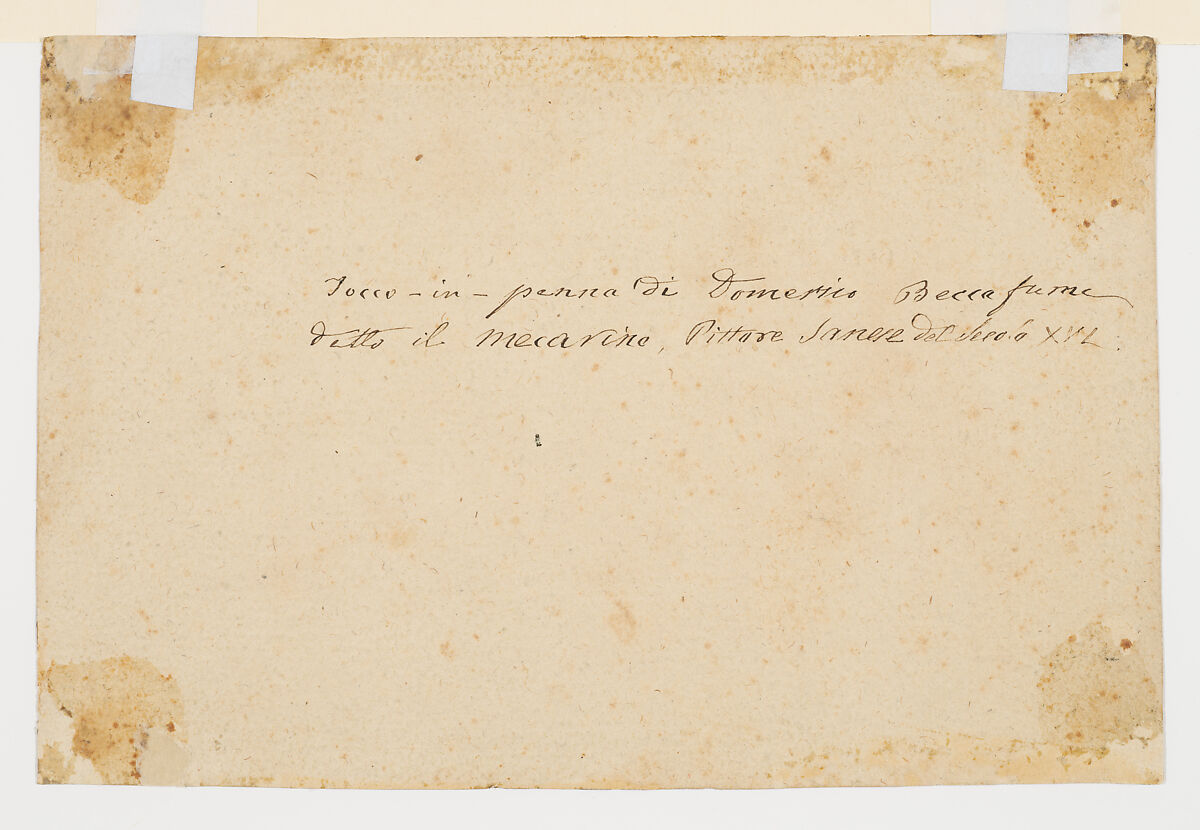 Tocco-in-penna di Domenico Beccafume
detto il Mecarino, Pittore Sanese del Secolo XVI.